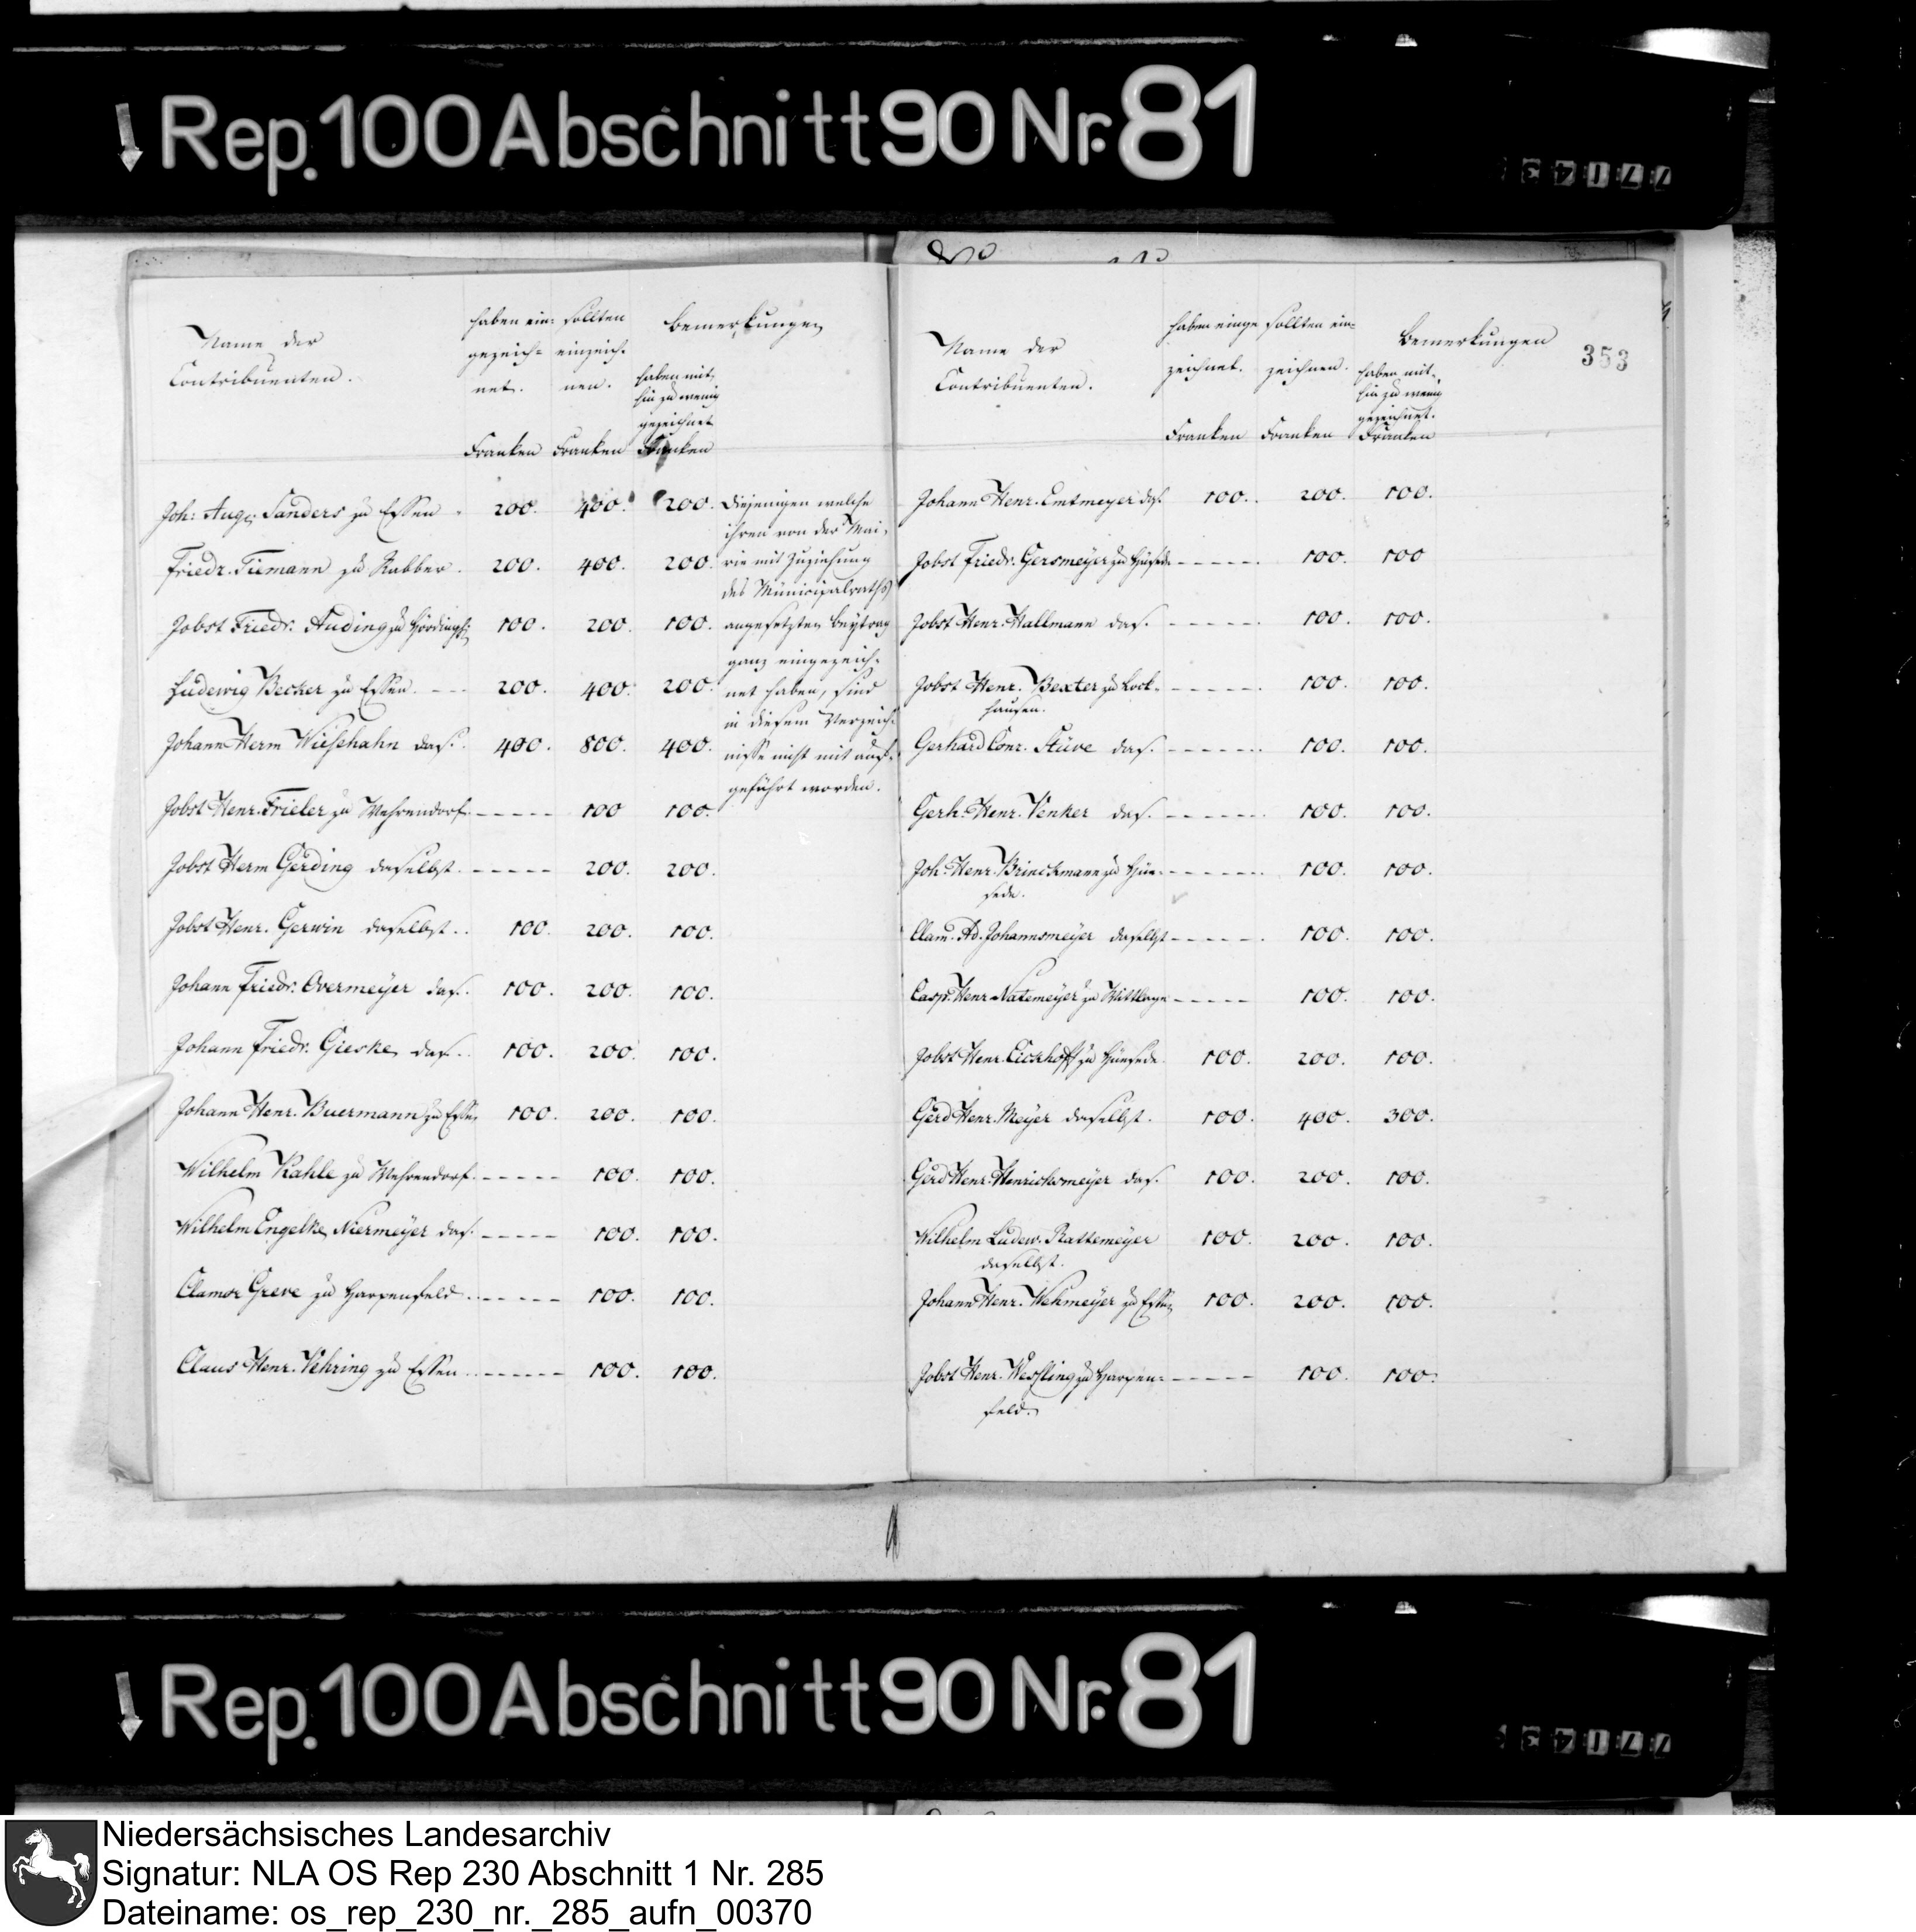 Rep. 100 Abschnitt 90 Nr. 81
Name der
Contribuenten.
haben ein=
gezeich=
net.
Franken
sollten
einzeich=
nen.
Franken
Bemerkungen
haben mit=
hin zu wenig
gezeichnet
Franken
Joh: Aug. Sanders zu Essen . 200. 400. 200.
Friedr. Tiemann zu Rabber . 200. 400. 200.
Jobst Friedr. Auding zu 100. 200. 100.
Ludewig Becker zu Essen. --- 200. 400. 200.
Johann Herm Wiesehahn das. 400. 800. 400.
Jobst Henr. Frieler zu Wehrendorf ----- 100 100.
Jobst Herm Gerding daselbst. ----- 200. 200.
Jobst Henr. Gerwin daselbst.. 100. 200. 100.
Johann Friedr. Overmeyer das.. 100. 200. 100.
Johann Friedr. Gieske das.. 100. 200. 100.
Johann Henr. Buermann zu Essen 100. 200. 100.
Wilhelm Kahle zu Wehrendorf ----- 100. 100.
Wilhelm Engelke Niermeyer das. ----- 100. 100.
Clamor Greve zu Harpenfeld .. ----- 100. 100.
Claus Henr. Vehring zu Essen .. ----- 100. 100.
Diejenigen welche
ihren von der Mai=
rie mit Zuziehung
des Municipalraths
angesetzten Beytrag
ganz eingezeich=
net haben, sind
in diesem Verzeich=
nisse nicht mit auf=
geführt worden.
353
Name der
Contribuenten.
haben einge
zeichnet.
Franken
sollten ein=
zeichnen.
Franken
Bemerkungen
haben mit=
hin zu wenig
gezeichnet.
Franken
Johann Henr. Emtmeyer das. 100. 200. 100.
Jobst Friedr. Gersmeyer zu Hüsede ----- 100. 100
Jobst Henr. Hallmann das. ----- 100. 100.
Jobst Henr. Bexter zu Lock= ----- 100. 100.
hausen.
Gerhard Conr. Stüve das. ----- 100. 100.
Gerh. Henr. Venker das. ----- 100. 100.
Joh. Henr. Brinckmann zu Hüe= ----- 100. 100.
sede.
Clam. Ad. Johannsmeyer daselbst ----- 100. 100.
Casp. Henr. Natemeyer zu Wittlage ----- 100. 100.
Jobst Henr. Eickhoff zu Hüesede 100. 200. 100.
Gerd Henr. Meyer daselbst. 100. 400. 300.
Gerd Henr. Henrichsmeyer das. 100. 200. 100.
Wilhelm Ludew. Rattemeyer 100. 200. 100.
daselbst.
Johann Henr. Wehmeyer zu Essen 100. 200. 100.
Jobst Henr. Wessling zu Harpen= ----- 100. 100.
feld.
Rep. 100 Abschnitt 90 Nr. 81
Niedersächsisches Landesarchiv
Signatur: NLA OS Rep 230 Abschnitt 1 Nr. 285
Dateiname: os_rep_230_nr._285_aufn_00370